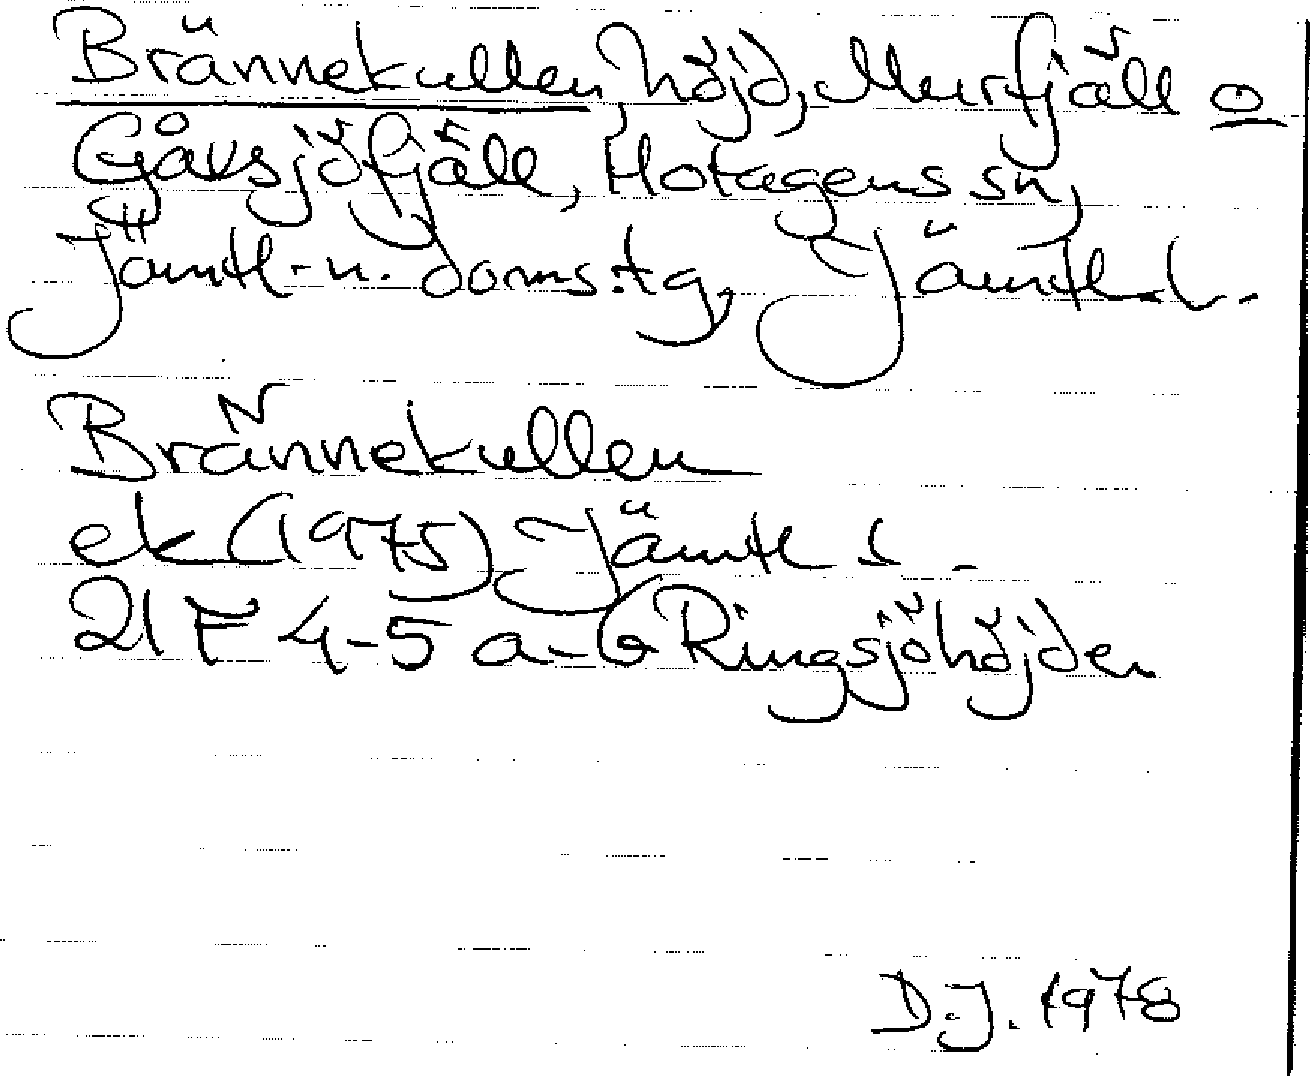 Brännekullen, höjd, Murfjäll o
Gåxsjöfjäll, Hotagens sn,
Jämtl. n. doms.tg, Jämtl. l.
Brännekullen
ek (1975) Jämtl l.
21 F 4-5 a-b Ringsjöhöjden
D.J. 1978